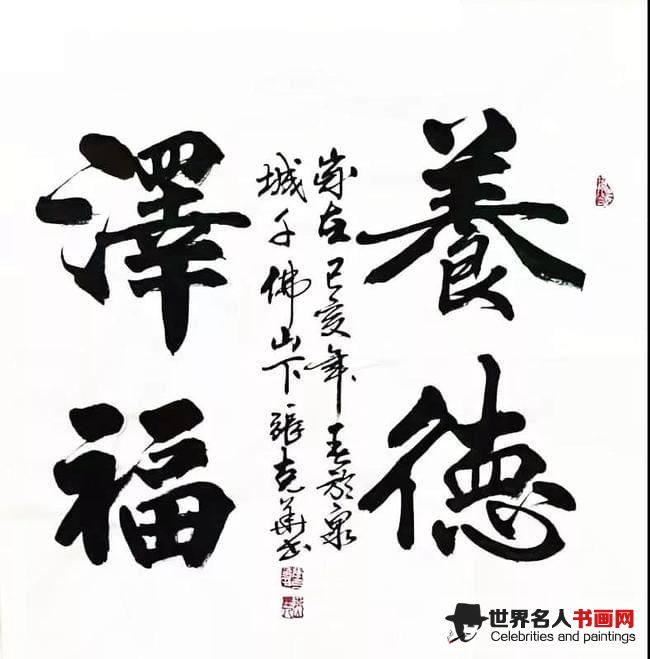 養德
歲在己亥年春於泉
城千佛山下張克華书
澤福
世界名人书画网
Celebrities and paintings